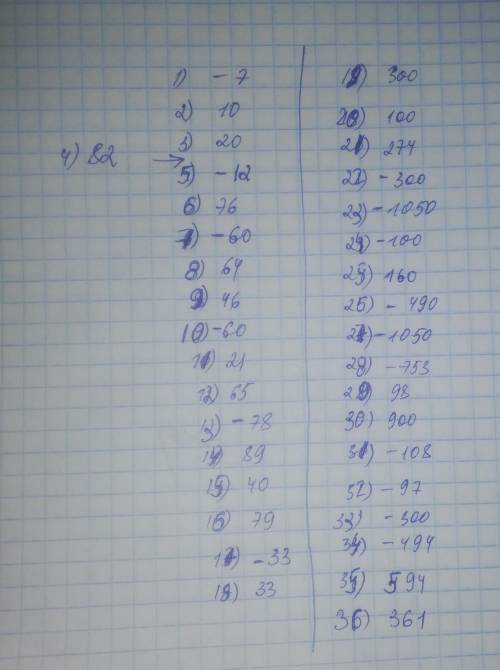 1) - 7
2) 10
3) 20
4) 82 →
5) - 12
6) 76
7) - 60
8) 64
9) 46
10) - 60
11) 21
12) 65
13) - 78
14) 89
15) 40
16) 79
17) - 33
18) 33
19) 300
20) 100
21) 274
22) - 300
23) - 1050
24) - 100
25) 160
26) - 490
27) - 1050
28) - 753
29) 93
30) 900
31) - 108
32) - 97
33) - 300
34) - 494
35) 594
36) 361